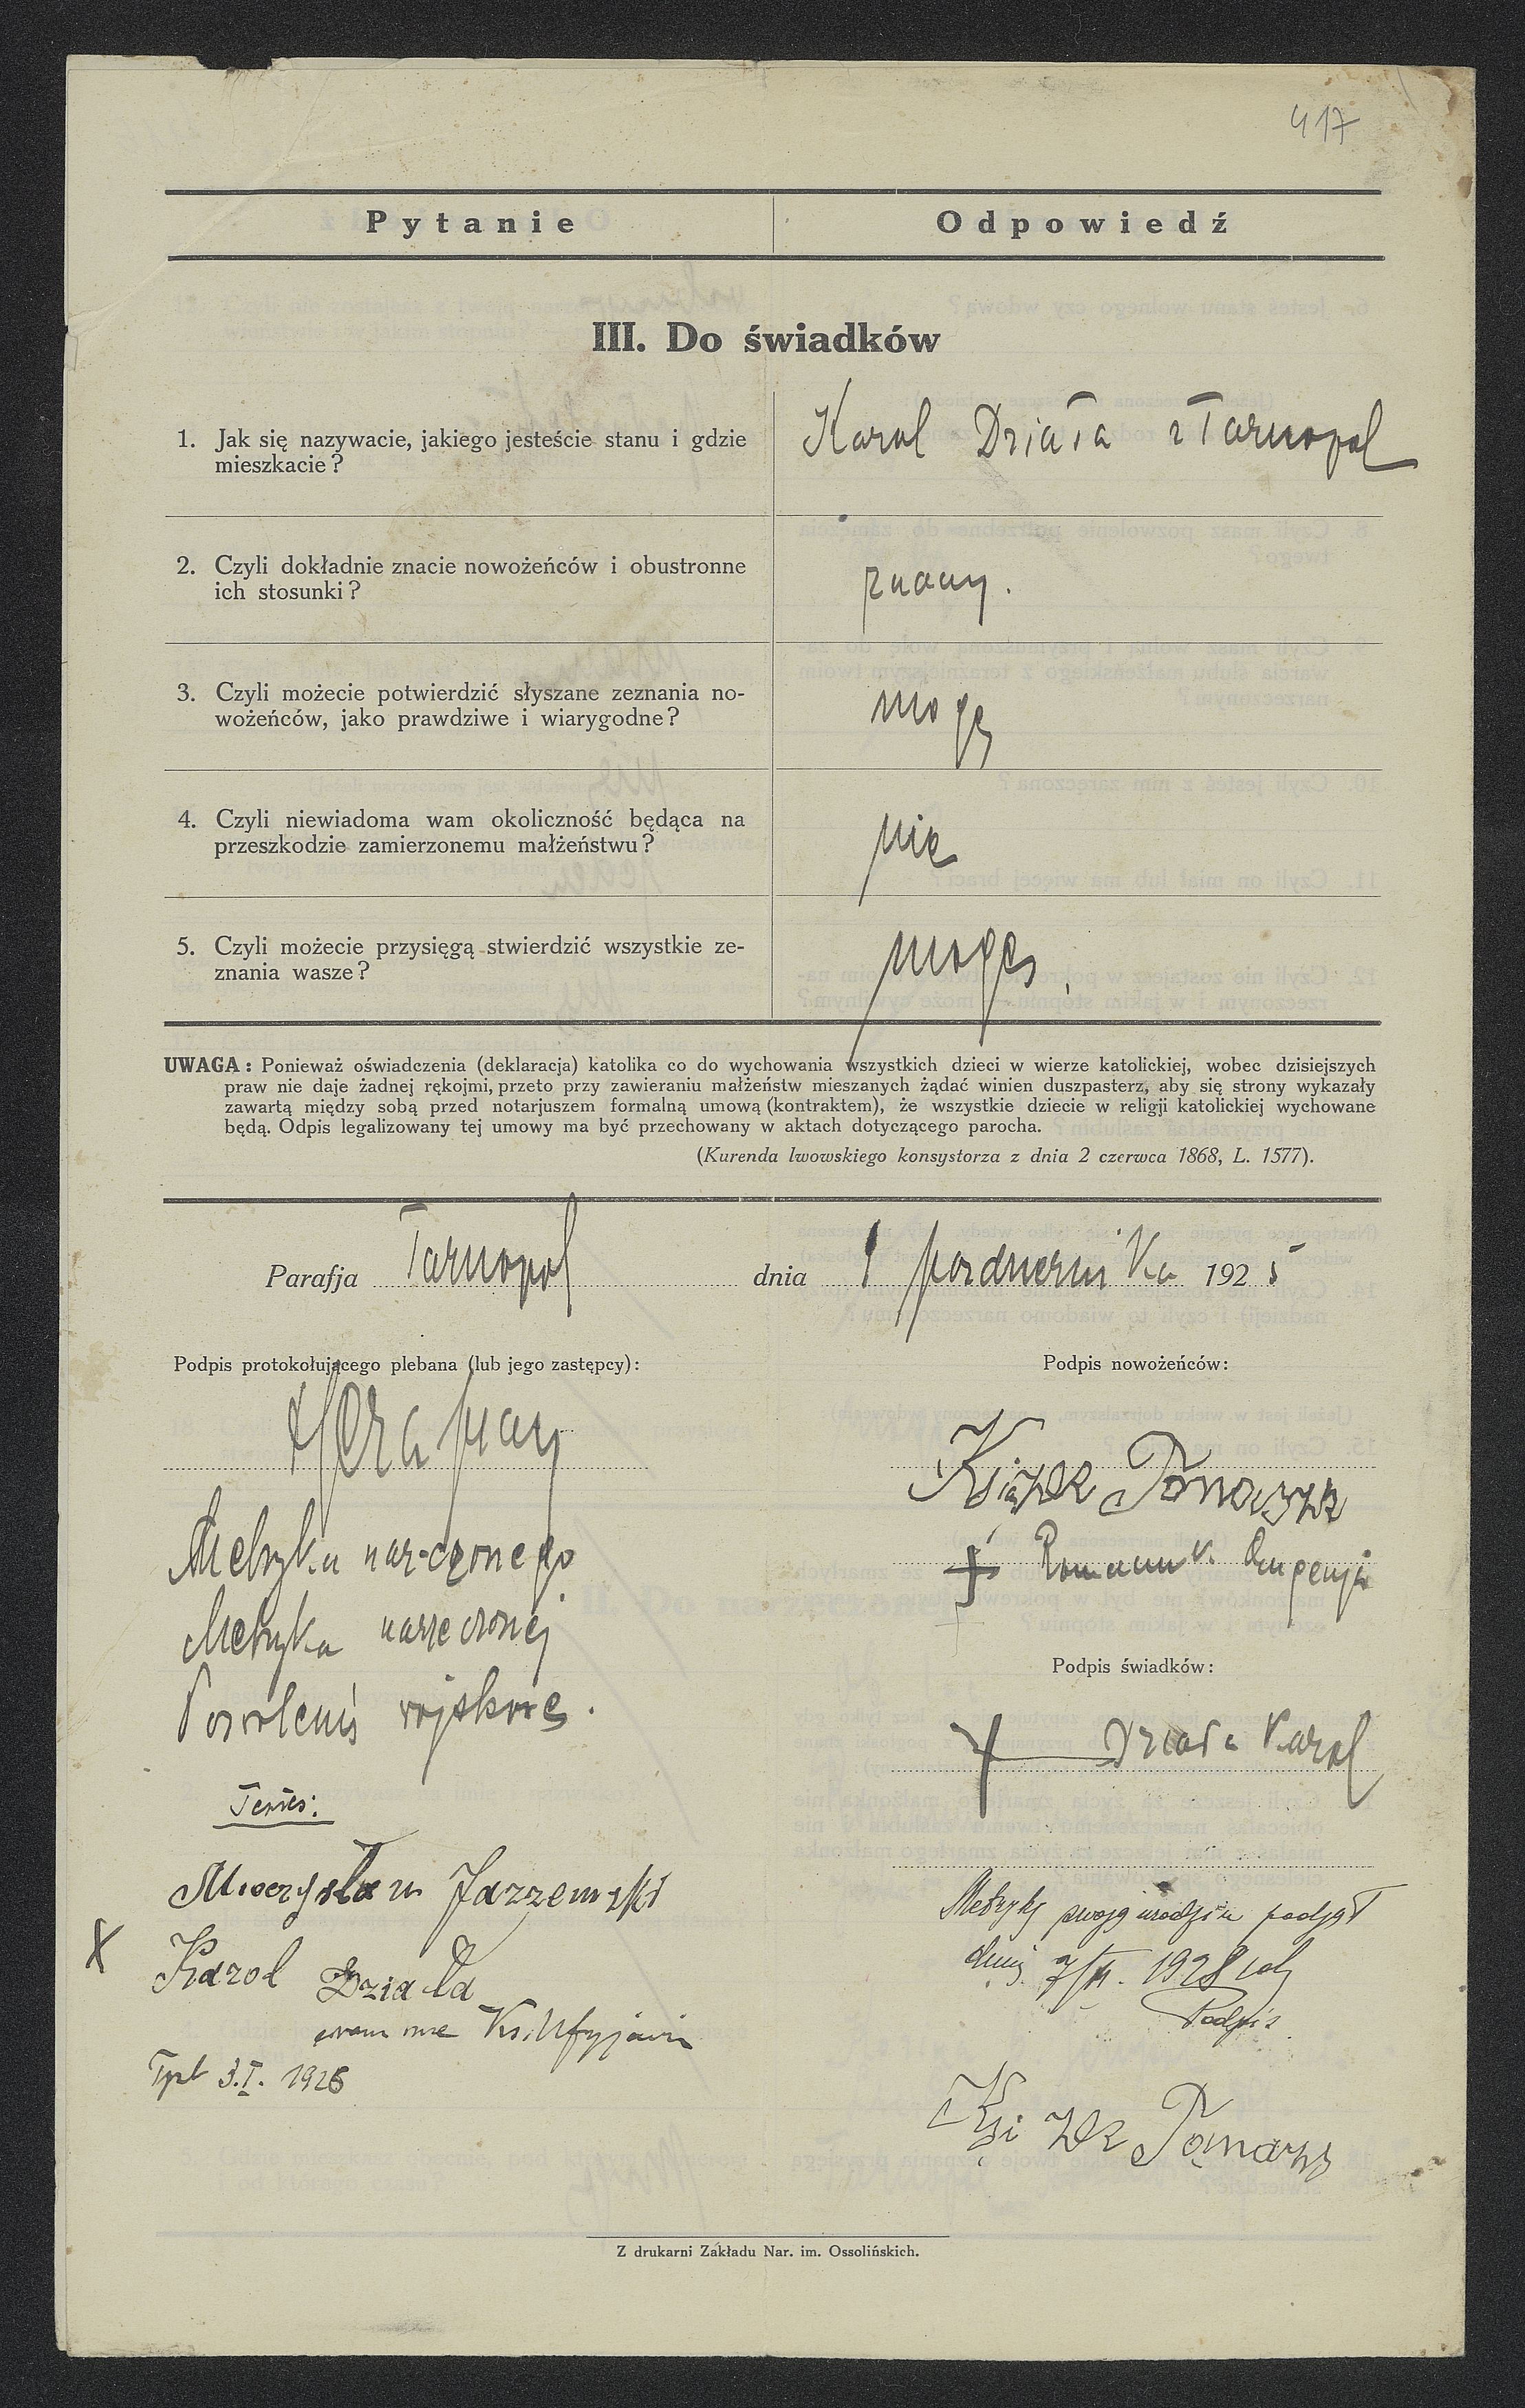 417
Pytanie Odpowiedź
III. Do świadków
1. Jak się nazywacie, jakiego jesteście stanu i gdzie
mieszkacie?
Karol Działa z Tarnopol
2. Czyli dokładnie znacie nowożeńców i obustronne
ich stosunki?
znamy.
3. Czyli możecie potwierdzić słyszane zeznania no-
wożeńców, jako prawdziwe i wiarygodne?
mogę
4. Czyli niewiadoma wam okoliczność będąca na
przeszkodzie zamierzonemu małżeństwu?
nie
5. Czyli możecie przysięgą stwierdzić wszystkie ze-
znania wasze?
mogę.
UWAGA: Ponieważ oświadczenia (deklaracja) katolika co do wychowania wszystkich dzieci w wierze katolickiej, wobec dzisiejszych
praw nie daje żadnej rękojmi, przeto przy zawieraniu małżeństw mieszanych żądać winien duszpasterz, aby się strony wykazały
zawartą między sobą przed notarjuszem formalną umową (kontraktem), że wszystkie dziecie w religji katolickiej wychowane
będą. Odpis legalizowany tej umowy ma być przechowany w aktach dotyczącego parocha.
(Kurenda lwowskiego konsystorza z dnia 2 czerwca 1868, L. 1577).
Parafja Tarnopol dnia 1 października 1925
Podpis protokołującego plebana (lub jego zastępcy):
Podpis nowożeńców:
Tomasz
Romaniuk Eugenja
Metryka narzeczonego
Metryka narzeczonej
wojskowe.
Podpis świadków:
Działa Karol
Testes:
Mieczysław Jarzemski
X Karol Działa
coram me Ks.
Tpol 3.I. 1926
Metrykę swoją urodzin podjął
1928
Podpis
Tomasz
Z drukarni Zakładu Nar. im. Ossolińskich.